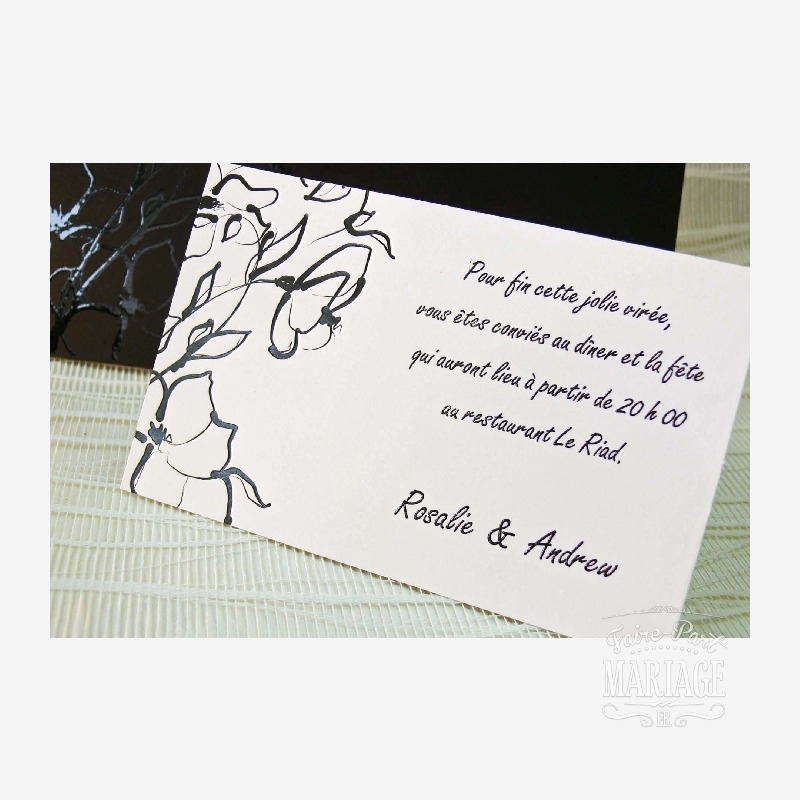 Pour fin cette jolie virée,
vous êtes conviés au dîner et la fête
qui auront lieu à partir de 20 h 00
au restaurant Le Riad.
Rosalie & Andrew
Faire-Part
MARIAGE
FR